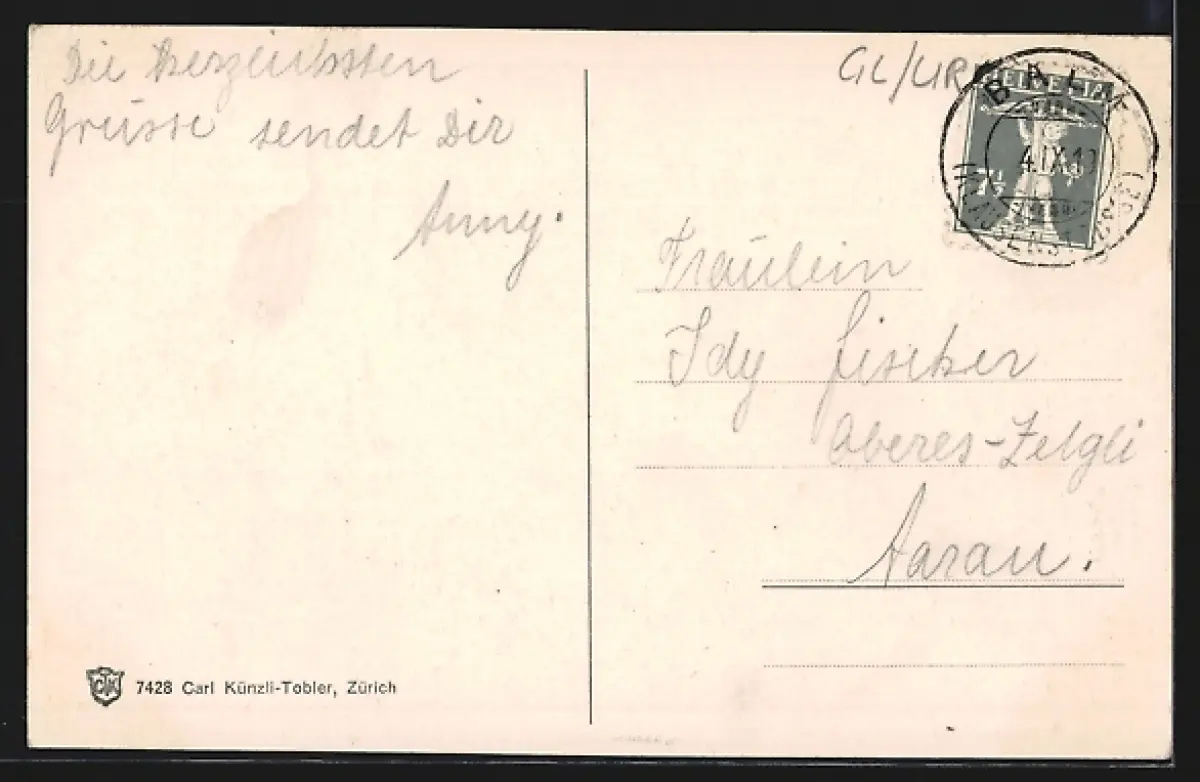 Die herzlichsten
Grüsse sendet Dir
Anny.
GL/UR
HELVETIA
7½
4.IX.19
(KLAUSENSTRASSE)
Fräulein
Idy Fischer
Oberes-Zelgli
Aarau.
CKT
7428 Carl Künzli-Tobler, Zürich